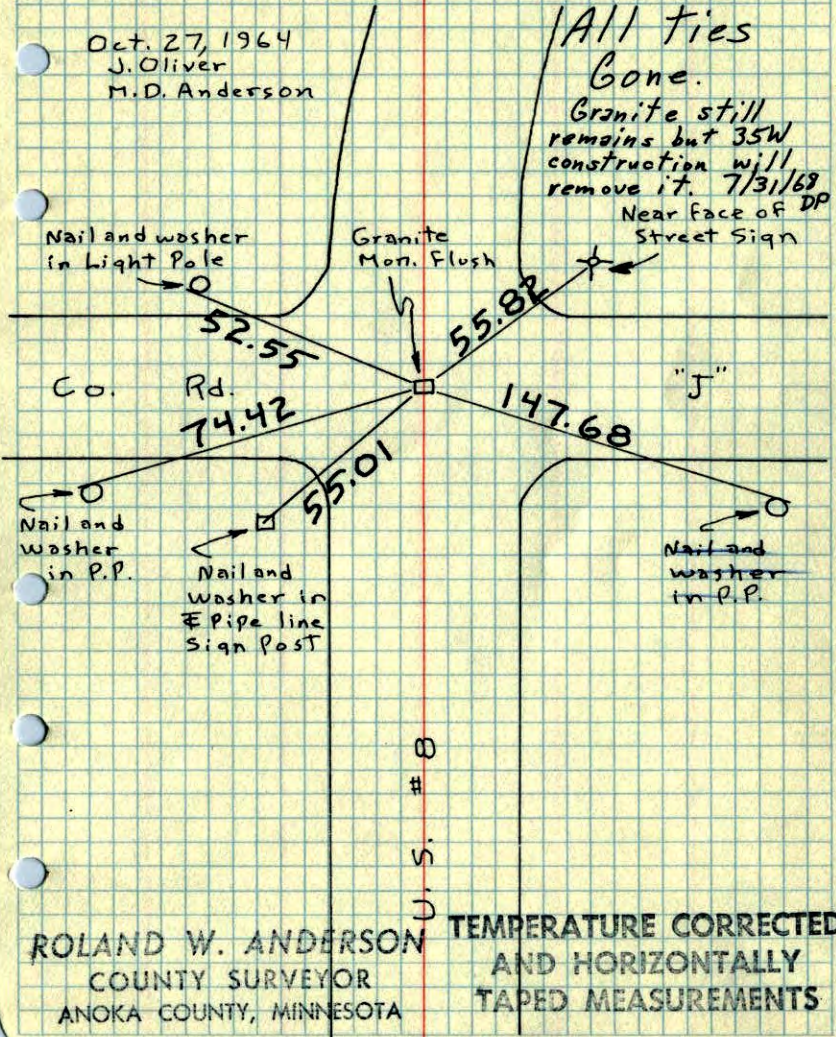 Oct. 27, 1964
J. Oliver
M.D. Anderson
All Ties
Gone.
Granite still
remains but 35W
construction will
remove it. 7/31/68
DP
Nail and washer
in Light Pole
Granite
Mon. Flush
Near Face of
Street Sign
52.55
55.82
Co. Rd. "J"
74.42
147.68
55.01
Nail and
washer
in P.P.
Nail and
washer in
E Pipe line
Sign Post
Nail and
washer
in P.P.
U.S. #8
ROLAND W. ANDERSON
COUNTY SURVEYOR
ANOKA COUNTY, MINNESOTA
TEMPERATURE CORRECTED
AND HORIZONTALLY
TAPED MEASUREMENTS